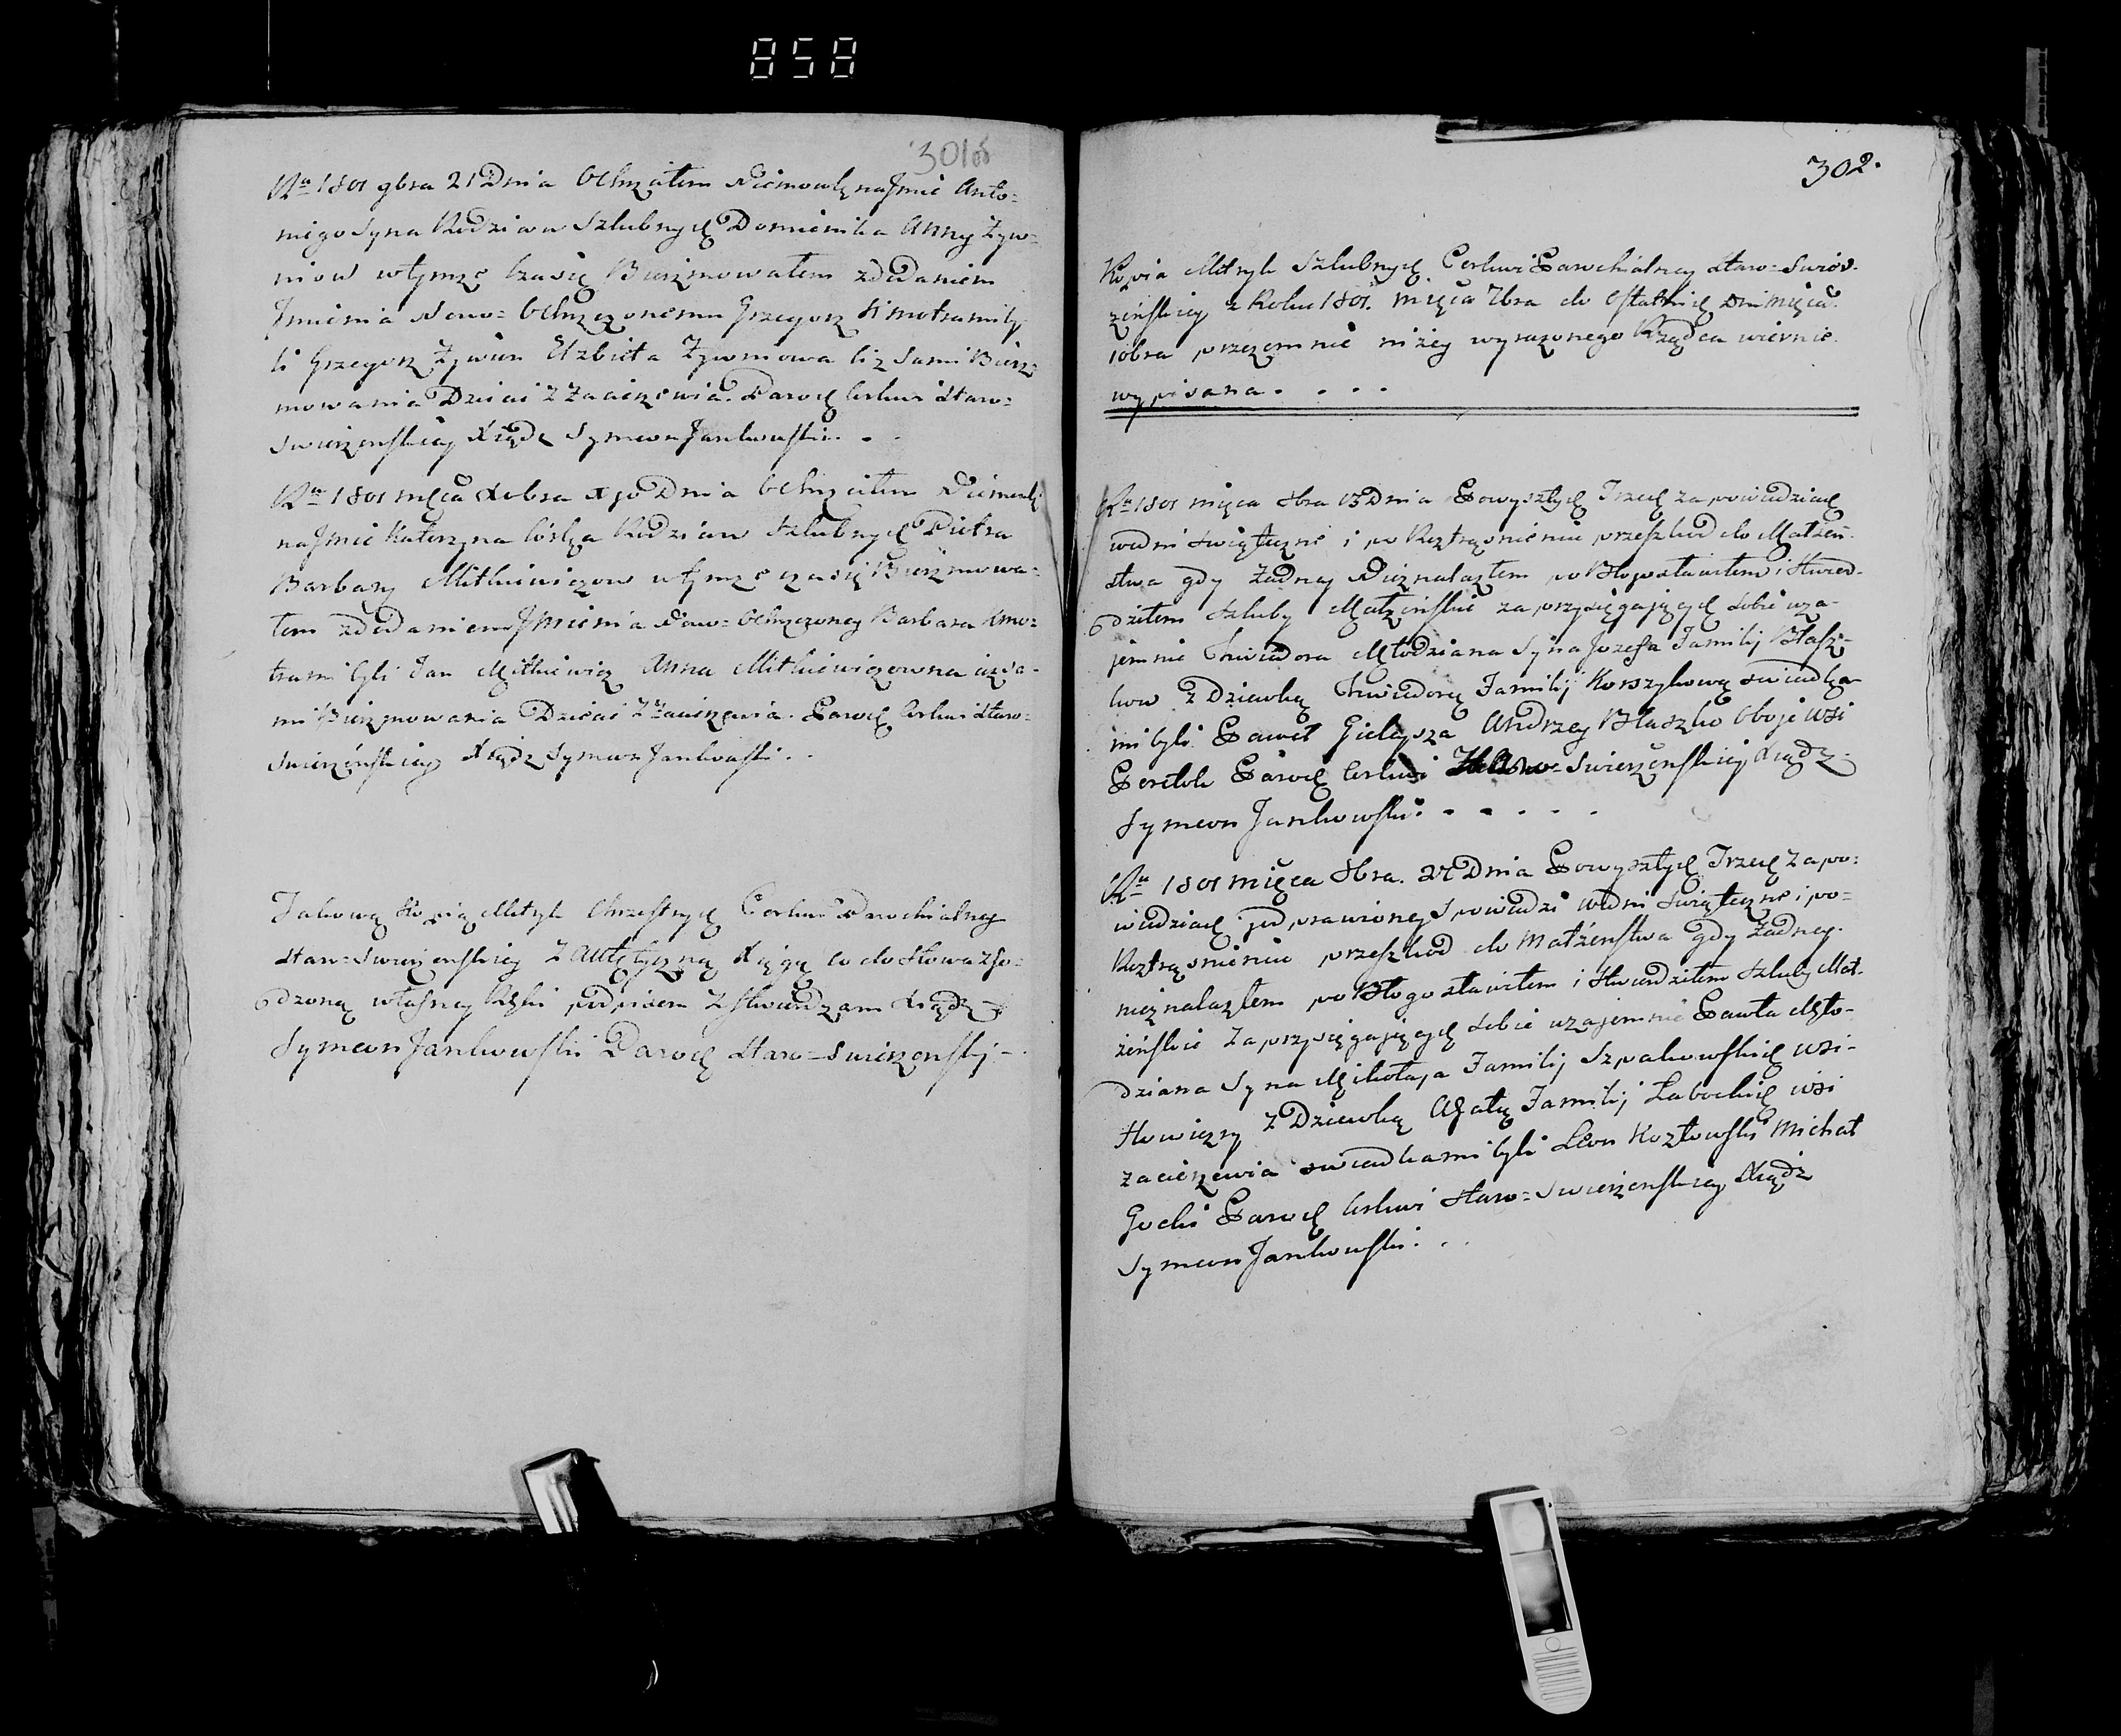 858
301об
Ru 1801 9bra 21 Dnia Ochrzciłem Niemowlę na Jmie Anto=
niego Syna Rodziców Szlubnych Domienika Anny Żyw=
niow w tymże Czasie Bierzmowałem z dodaniem
Jmienia Nowo= Ochrzczonemu Grzegorz Kmotrami by
li Grzegorz Żywien Elzbieta Żywniowa ciz Sami Bierz=
mowania Dzieci z Zacierzewia. Paroch Cerkwi Staro=
Swierzenskiey Xiądz Symeon Jankowski . .
Ru 1801 mięca Xobra Dnia Ochrzciłem Niemowlę
na Jmie Katerzyna Córka Rodzicow Szlubnych Pietra
Barbary Mitkiewiczow w tymże czasie Bierzmowa=
łem z dodaniem Jmienia Nowo= Ochrzczoney Barbara Kmo=
trami byli Jan Mitkiewicz Anna Mitkiewiczowna
mi Bierzmowania Dzieci z Zacierzewia. Paroch Cerkwi Staro=
Swierzeńskiey Xiądz Symeon Jankowski . .
Takową Kopią Metryk Chrzestnych Cerkwi Parochialney
Staro=Swierzenskiey z Xięgą co do słowa zgo=
dzoną własney Ręki podpisem Xiądz
Symeon Jankowski Paroch Staro=Swierzenski -
302.
Kopia Metryk Szlubnych Cerkwi Parochialney Staro=Swier=
zeńskiey z Roku 1801. mięca 7bra do Ostatnich Dni mięca
10bra przezemnie niżey wyrażonego Rządca wiernie
wypisana . . . .
Ru 1801 mięca 8bra 13 Dnia Powyszłych Trzech zapowiedziach
w dni Swiąteczne i po Roztrząsnieniu przeszkod do Małżeń=
stwa gdy żadney Nieznalazłem pobłogosławiłem i Stwier=
dziłem Szluby Małżeńskie zaprzysięgających sobie wza=
jemnie Chwiedora Młodziana Syna Jozefa Familij Błasz=
kow z Dziewką Chwiedorą Familij Korszykową swiadka=
mi byli Paweł Gielysza Andrzey Błaszko Oboje wsi
Paroch Cerkwi Staro=Swierzenskiey Xiądz
Symeon Jankowski . . . . .
Ru 1801 mięca 8bra. Dnia Powyszłych Trzech zapo=
wiedziach spowiedzi w dni Swiąteczne i po=
Roztrząsnieniu przeszkod do Małżenstwa gdy żadney
nieznalazłem pobłogosławiłem i Stwierdziłem Szluby Mał=
żeńskie Zaprzysięgających sobie wzajemnie Pawła Mło=
dziana Syna Mikołaja Familij Szpakowskich wsi
z Dziewką Agatą Familij Łabockich wsi
Zacierzewia swiadkami byli Leon Kozłowski Michał
Gocki Paroch Cerkwi Staro=Swierzenskiey Xiądz
Symeon Jankowski . . .